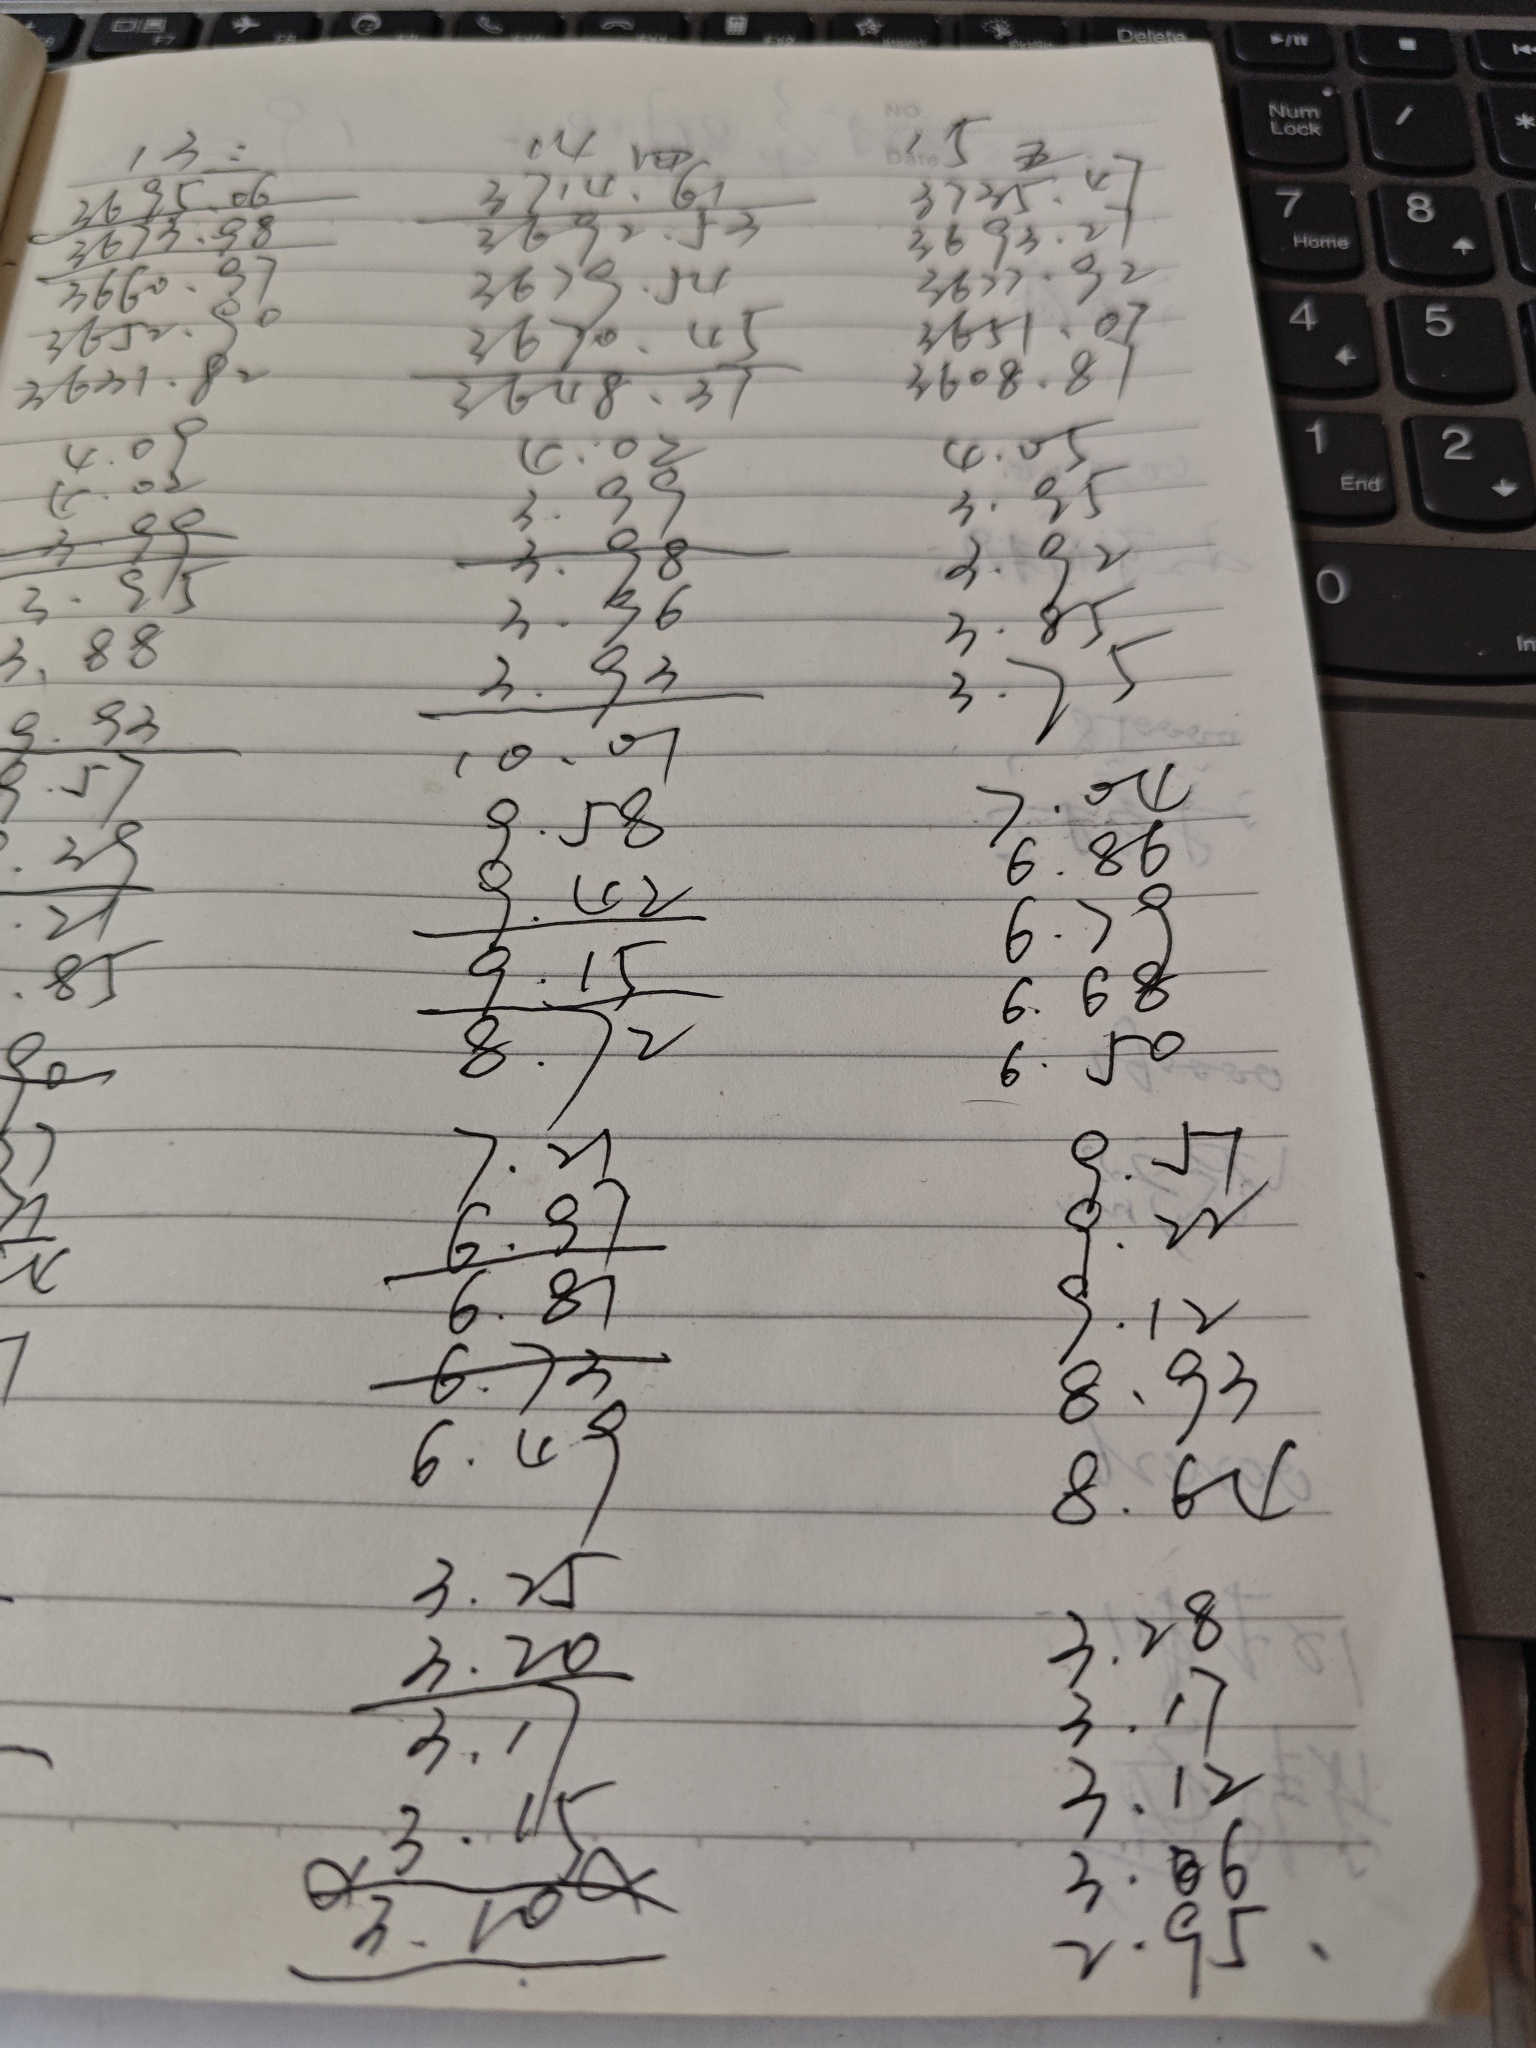 Delete
Num Lock
/
*
7 Home
8
4
5
1 End
2
0
In
F7
NO
Date
13 二
3695.06
3673.98
3660.97
3652.90
3631.82
4.09
4.02
3.99
3.95
3.88
9.93
9.57
.39
.21
.85
90
14 四
3714.61
3692.53
3679.54
3670.45
3648.37
4.02
3.99
3.98
3.96
3.93
10.07
9.58
9.42
9.15
8.72
7.21
6.97
6.87
6.73
6.49
3.25
3.20
3.17
3.15
3.10
15 五
3735.47
3693.21
3677.92
3651.07
3608.81
4.05
3.95
3.92
3.85
3.75
7.04
6.86
6.79
6.68
6.50
9.57
9.22
9.12
8.93
8.64
3.28
3.17
3.12
3.06
2.95